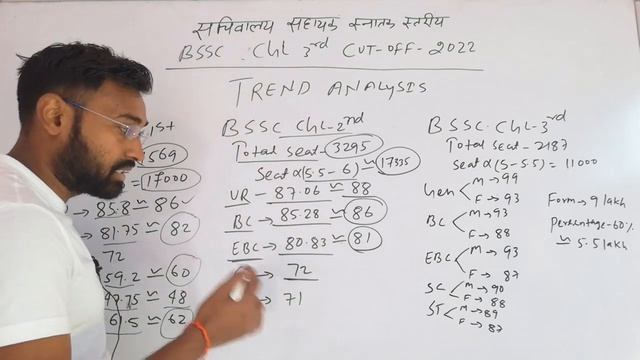 सचिवालय सहायक स्नातक स्तरीय
BSSC CGL 3rd CUT-OFF-2022
TREND ANALYSIS
1st
1569
= 17000
→ 85.8 ≃ 86
→ 81.75 ≃ 82
72
59.2 ≃ 60
47.75 ≃ 48
61.5 ≃ 62
BSSC CGL-2nd
Total seat - 3295
Seat α (5.5-6) ≃ 17335
UR - 87.06 ≃ 88
BC → 85.28 ≃ 86
EBC → 80.83 ≃ 81
→ 72
→ 71
BSSC CGL-3rd
Total seat - 2187
Seat α (5-5.5) = 11000
Gen < M → 99
F → 93
BC < M → 93
F → 88
EBC < M → 93
F → 87
SC < M → 90
F → 88
ST < M → 89
F → 87
Form → 9 lakh
Percentage - 60%
≃ 5.5 lakh